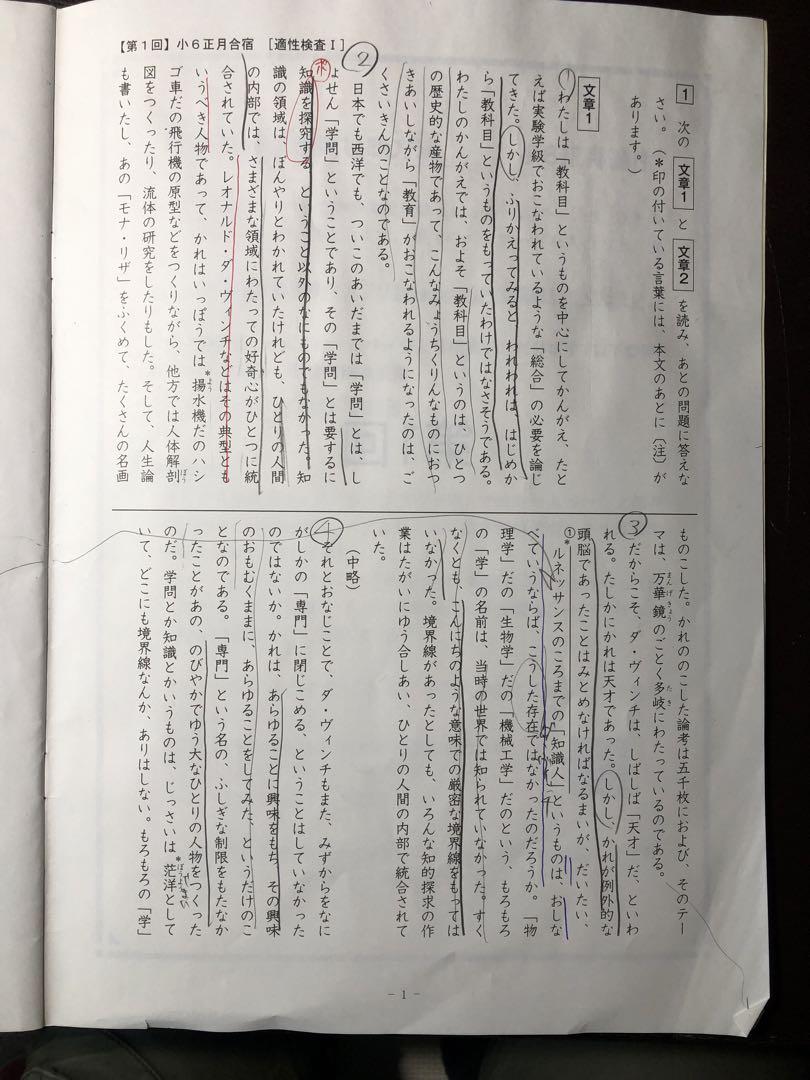 【第1回】小6正月合宿 [適性検査Ⅰ]
1 次の 文章1 と 文章2 を読み、あとの問題に答えな
さい。(*印の付いている言葉には、本文のあとに〔注〕が
あります。)
文章1
①
わたしは「教科目」というものを中心にしてかんがえ、たと
えば実験学級でおこなわれているような「総合」の必要を論じ
てきた。しかし、ふりかえってみると、われわれは、はじめか
ら「教科目」というものをもっていたわけではなさそうである。
わたしのかんがえでは、およそ「教科目」というのは、ひとつ
の歴史的な産物であって、こんなみょうちくりんなものにおつ
きあいしながら「教育」がおこなわれるようになったのは、ご
くさいきんのことなのである。
②
日本でも西洋でも、ついこのあいだまでは「学問」とは、し
ょせん「学問」ということであり、その「学問」とは要するに
ポ
知識を探究する、ということ以外のなにものでもなかった。知
識の領域は、ぼんやりとわかれていたけれども、ひとりの人間
の内部では、さまざまな領域にわたっての好奇心がひとつに統
合されていた。レオナルド・ダ・ヴィンチなどはその典型とも
いうべき人物であって、かれはいっぽうでは*揚水機だのハシ
よう
ゴ車だの飛行機の原型などをつくりながら、他方では人体解剖
ぼう
図をつくったり、流体の研究をしたりもした。そして、人生論
も書いたし、あの「モナ・リザ」をふくめて、たくさんの名画
ものこした。かれののこした論考は五千枚におよび、そのテー
マは、万華鏡のごとく多岐にわたっているのである。
まんげきょう
たき
③
だからこそ、ダ・ヴィンチは、しばしば「天才」だ、といわ
れる。たしかにかれは天才であった。しかし、かれが例外的な
頭脳であったことはみとめなければなるまいが、だいたい、
①*ルネッサンスのころまでの「知識人」というものは、おしな
べていうならば、こうした存在ではなかったのだろうか。「物
理学」だの「生物学」だの「機械工学」だのという、もろもろ
の「学」の名前は、当時の世界では知られていなかった。すく
なくとも、こんにちのような意味での厳密な境界線をもっては
いなかった。境界線があったとしても、いろんな知的探求の作
業はたがいにゆう合しあい、ひとりの人間の内部で統合されて
いた。
(中略)
④
それとおなじことで、ダ・ヴィンチもまた、みずからをなに
がしかの「専門」に閉じこめる、ということはしていなかった
のではないか。かれは、あらゆることに興味をもち、その興味
のおもむくままに、あらゆることをしてみた、というだけのこ
となのである。「専門」という名の、ふしぎな制限をもたなか
ったことがあの、のびやかでゆう大なひとりの人物をつくった
のだ。学問とか知識とかいうものは、じっさいは*茫洋として
ぼうよう
いて、どこにも境界線なんか、ありはしない。もろもろの「学」
- 1 -